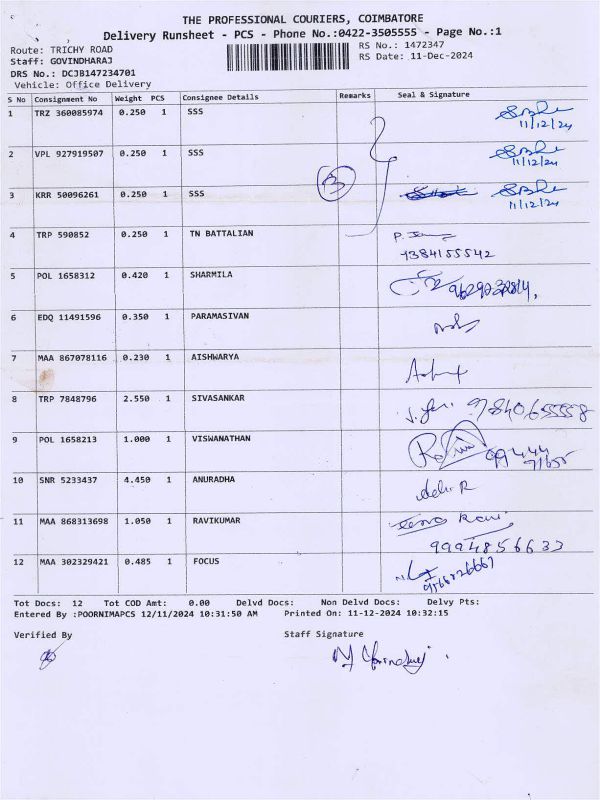 THE PROFESSIONAL COURIERS, COIMBATORE
Delivery Runsheet - PCS - Phone No.:0422-3505555 - Page No.:1
Route: TRICHY ROAD
RS No.: 1472347
Staff: GOVINDHARAJ
RS Date: 11-Dec-2024
DRS No.: DCJB147234701
Vehicle: Office Delivery
S No Consignment No Weight PCS Consignee Details Remarks Seal & Signature
1 TRZ 360085974 0.250 1 SSS
11/12/24
2 VPL 927919507 0.250 1 SSS
11/12/24
3
3 KRR 50096261 0.250 1 SSS
11/12/24
4 TRP 590852 0.250 1 TN BATTALIAN
5 POL 1658312 0.420 1 SHARMILA
6 EDQ 11491596 0.350 1 PARAMASIVAN
7 MAA 867078116 0.230 1 AISHWARYA
8 TRP 7848796 2.550 1 SIVASANKAR
9 POL 1658213 1.000 1 VISWANATHAN
99444
71655
10 SNR 5233437 4.450 1 ANURADHA
11 MAA 868313698 1.050 1 RAVIKUMAR
12 MAA 302329421 0.485 1 FOCUS
Tot Docs: 12 Tot COD Amt: 0.00 Delvd Docs: Non Delvd Docs: Delvy Pts:
Entered By :POORNIMAPCS 12/11/2024 10:31:50 AM Printed On: 11-12-2024 10:32:15
Verified By Staff Signature